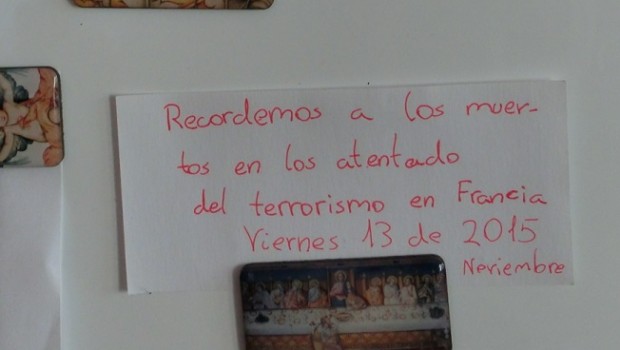 Recordemos a los muer-
tos en los atentado
del terrorismo en Francia
Viernes 13 de 2015
Noviembre